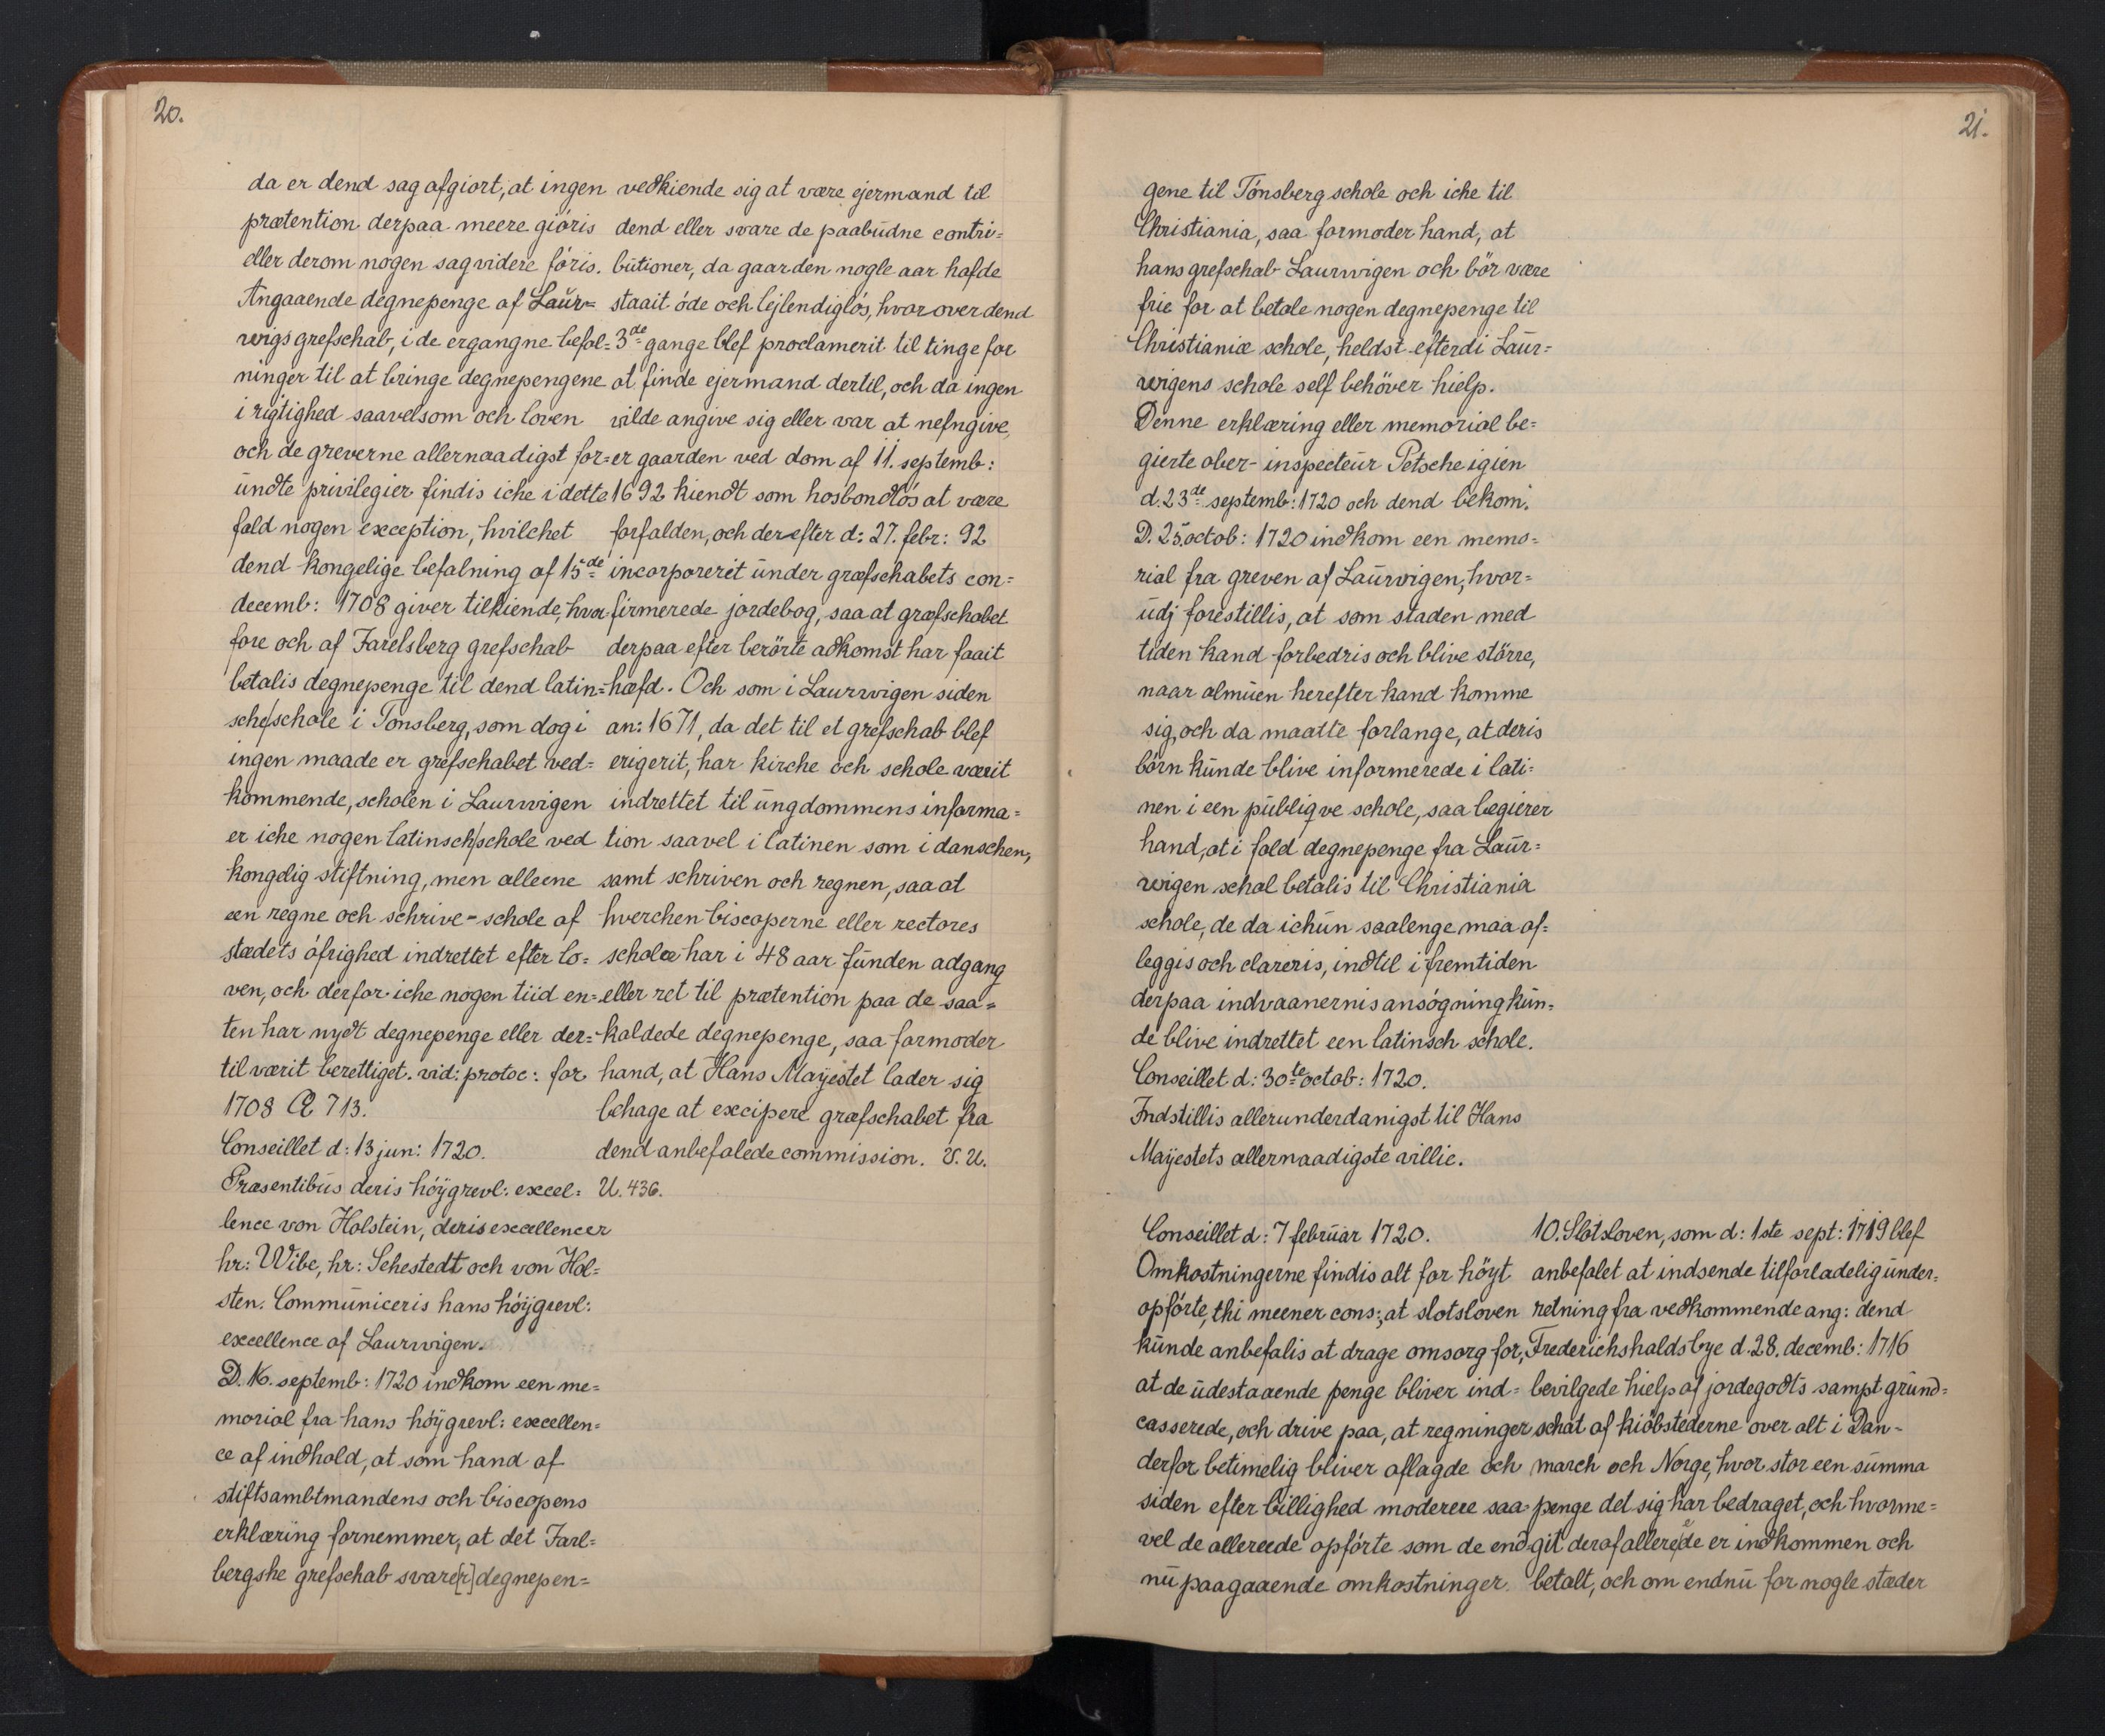 20.
da er dend sag afgiort, at ingen
prætention derpaa meere giöris
eller derom nogen sag videre föris.
Angaaende degnepenge af Laur=
wigs grefschab, i de ergangne befal=
ninger til at bringe degnepengene
i rigtighed saavelsom och loven
och de greverne allernaadigst for=
undte privilegier findis iche i dette
fald nogen exception, hvilchet
dend kongelige befalning af 15de
decemb: 1708 giver tilkiende, hvor
fore och af Jarelsberg grefschab
betalis degnepenge til dend latin=
sche/schole i Tonsberg, som dog i
ingen maade er grefschabet ved=
kommende, scholen i Laurwigen
er iche nogen latinsch/schole ved
kongelig stiftning, men alleene
een regne och schrive-schole af
stædets öfrighed indrettet efter lo=
ven, och derfor iche nogen tiid en=
ten har nydt degnepenge eller der=
til værit berettiget. vid: protoc: for
1708 Æ 713.
Conseillet d: 13 jun: 1720.
Præsentibus deris höÿgrevl: excel=
lence von Holstein, deris excellencer
hr: Wibe, hr: Sehestedt och von Hol=
sten. Communiceris hans höÿgrevl:
excellence af Laurwigen.
D. 16. septemb: 1720 indkom een me=
morial fra hans höÿgrevl: excellen=
ce af indhold, at som hand af
stiftsambtmandens och biscopens
erklæring fornemmer, at det Jarl=
bergske grefschab svare[r] degnepen=
vedkiende sig at være ejermand til
dend eller svare de paabudne contri=
butioner, da gaarden nogle aar hafde
staait öde och lejlendiglös, hvorover dend
3de gange blef proclamerit til tinge for
at finde ejermand dertil, och da ingen
vilde angive sig eller var at nefngive,
er gaarden ved dom af 11. septemb:
1692 kiendt som hosbondlös at være
forfalden, och derefter d: 27. febr: 92
incorporerit under græfschabets con=
firmerede jordebog, saa at græfschabet
derpaa efter berörte adkomst har faait
hæfd. Och som i Laurwigen siden
an: 1671, da det til et grefschab blef
erigerit, har kirche och schole værit
indrettet til ungdommens informa=
tion saavel i latinen som i danschen,
samt schriven och regnen, saa at
hverchen biscoperne eller rectores
scholæ har i 48 aar funden adgang
eller ret til prætention paa de saa=
kaldede degnepenge, saa formoder
hand, at Hans Maÿestet lader sig
behage at excipere græfschabet fra
dend anbefalede commission. V. U.
U. 436.
21.
gene til Tönsberg schole och iche til
Christiania, saa formoder hand, at
hans grefschab Laurwigen och bör være
frie for at betale nogen degnepenge til
Christianiæ schole, heldst efterdi Laur=
wigens schole self behöver hielp.
Denne erklæring eller memorial be=
gierte ober-inspecteur Petsche igien
d. 23de septemb: 1720 och dend bekom.
D. 25. octob: 1720 indkom een memo=
rial fra greven af Laurwigen, hvor=
udj forestillis, at som staden med
tiden kand forbedris och blive större,
naar almuen herefter kand komme
sig, och da maatte forlange, at deris
börn kunde blive informerede i lati=
nen i een publiqve schole, saa begierer
hand, at i fald degnepenge fra Laur=
wigen schal betalis til Christiania
schole, de da ichun saalenge maa af=
leggis och clareris, indtil i fremtiden
derpaa indvaanernis ansögning kun=
de blive indrettet een latinsch schole.
Conseillet d: 30te octob: 1720.
Indstillis allerunderdanigst til Hans
Maÿestets allernaadigste villie.
Conseillet d: 7 februar 1720.
Omkostningerne findis alt for höÿt
opförte, thi meener cons:, at slotsloven
kunde anbefalis at drage omsorg for,
at de udestaaende penge bliver ind=
casserede, och drive paa, at regninger
derfor betimelig bliver aflagde och
siden efter billighed moderere saa
vel de allereede opförte som de end
nu paagaaende omkostninger.
10. Slotsloven, som d: 1ste sept: 1719 blef
anbefalet at indsende tilforladelig under=
retning fra vedkommende ang: dend
Frederichshalds bye d. 28. decemb: 1716
bevilgede hielp af jordegodts sampt grund=
schat af kiöbstederne over alt i Dan-
march och Norge, hvor stor een summa
penge det sig har bedraget, och hvorme=
git deraf allerede er indkommen och
betalt, och om endnu for nogle stæder